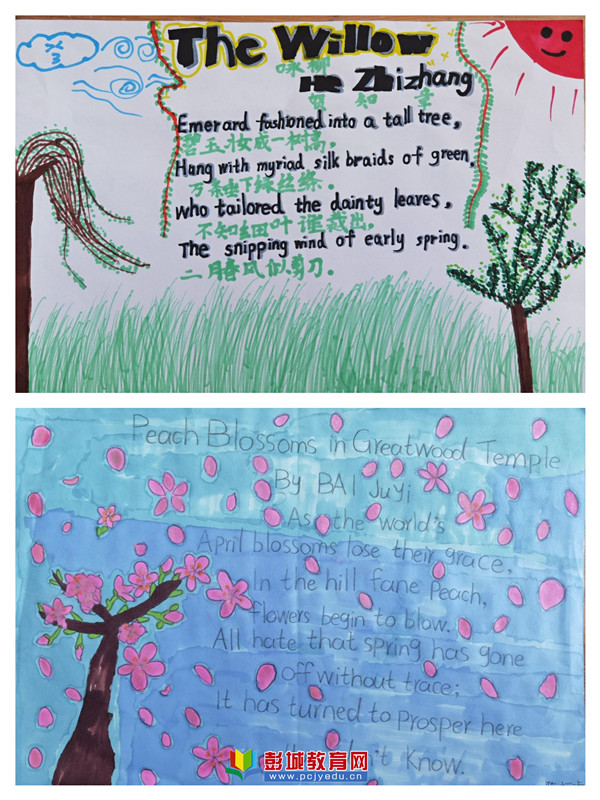 The Willow
咏柳
He Zhizhang
贺知章
Emerard fashioned into a tall tree,
碧玉妆成一树高,
Hang with myriad silk braids of green,
万条垂下绿丝绦.
who tailored the dainty leaves,
不知细叶谁裁出,
The snipping wind of early spring.
二月春风似剪刀.
Peach Blossoms in Greatwood Temple
By BAI JuYi
As the world's
April blossoms lose their grace,
In the hill fane Peach,
flowers begin to blow.
All hate that spring has gone
off without trace;
It has turned to prosper here
Know.
彭城教育网
www.pcjyedu.cn